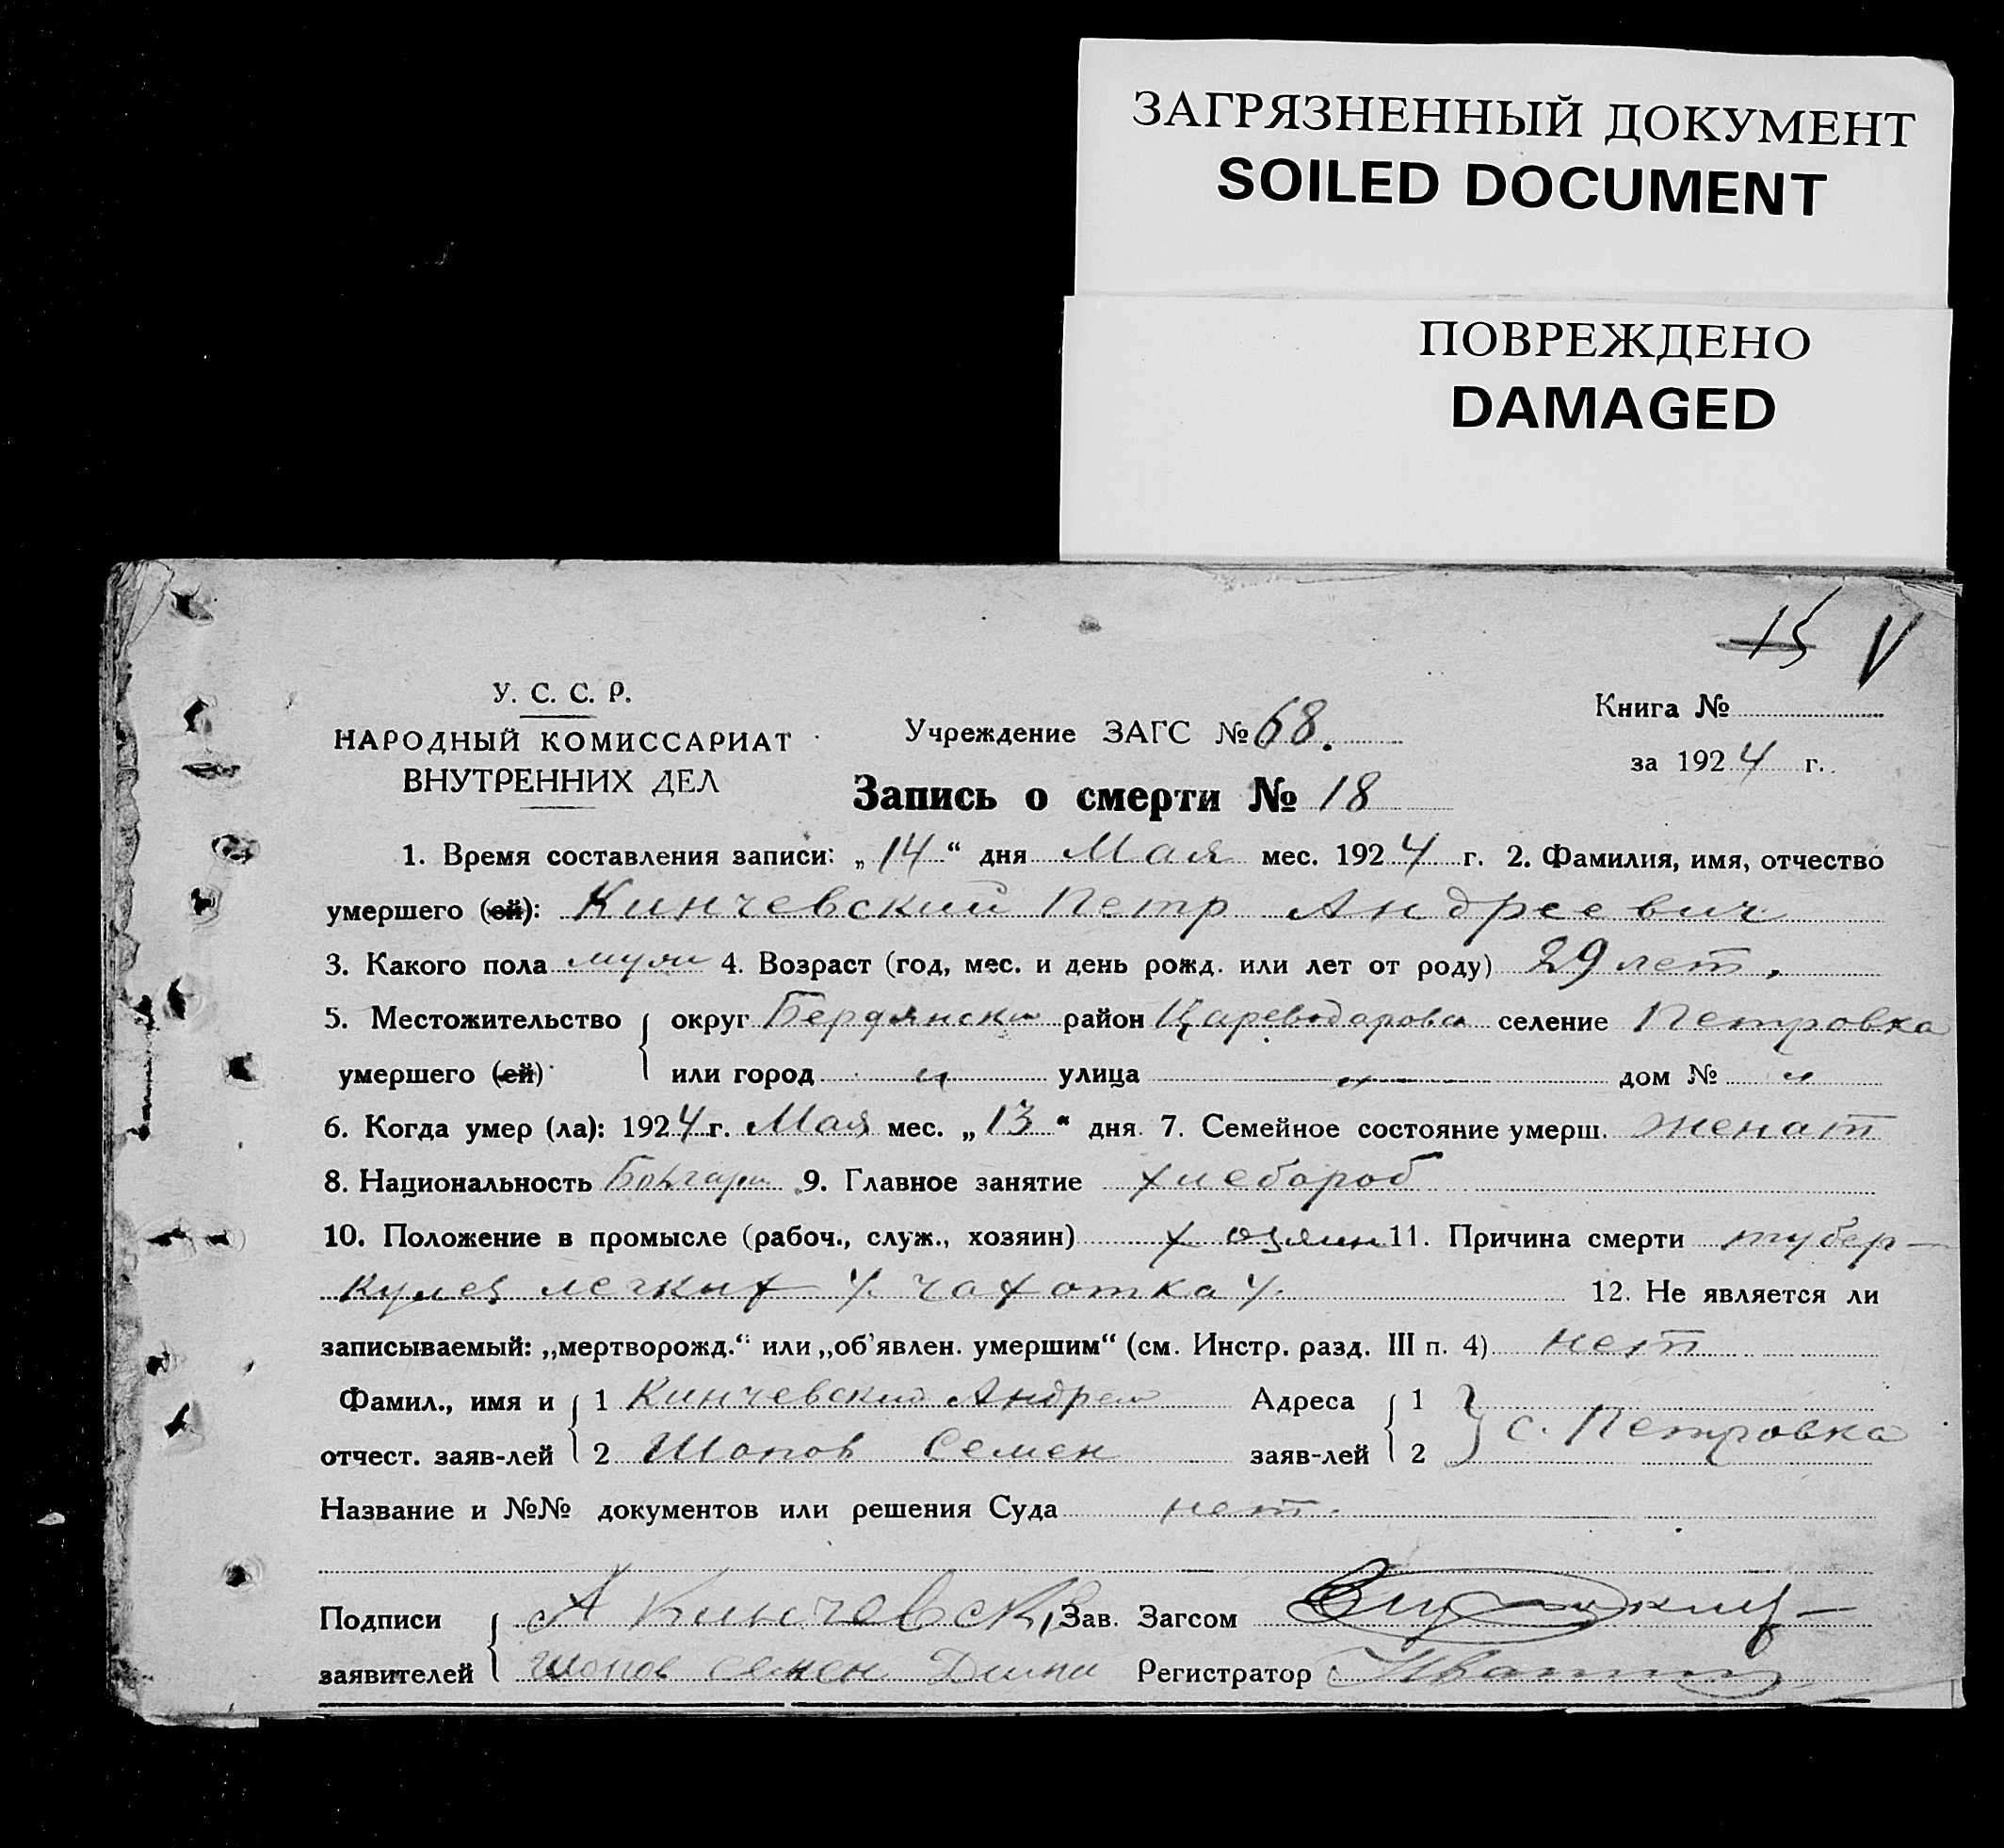 ЗАГРЯЗНЕННЫЙ ДОКУМЕНТ
SOILED DOCUMENT
ПОВРЕЖДЕНО
DAMAGED
15 V
У. С. С. Р.
НАРОДНЫЙ КОМИССАРИАТ
ВНУТРЕННИХ ДЕЛ
Учреждение ЗАГС № 68.
Книга №
за 1924 г.
Запись о смерти № 18
1. Время составления записи: „14“ дня Мая мес. 1924 г. 2. Фамилия, имя, отчество
умершего (ей): Кинчевский Петр Андреевич
3. Какого пола муж 4. Возраст (год, мес. и день рожд. или лет от роду) 29 лет.
5. Местожительство округ Бердянский район Цареводаровск селение Петровка
умершего (ей) или город " улица " дом № "
6. Когда умер (ла): 1924 г. Мая мес. „13“ дня 7. Семейное состояние умерш. женат
8. Национальность Болгарин 9. Главное занятие хлебороб
10. Положение в промысле (рабоч., служ., хозяин) хозяин 11. Причина смерти тубер-
кулез легких /. чахотка /. 12. Не является ли
записываемый: „мертворожд.“ или „об'явлен. умершим“ (см. Инстр. разд. III п. 4) нет
Фамил., имя и 1 Кинчевский Андрей Адреса 1
отчест. заяв-лей 2 Шопов Семен заяв-лей 2 с. Петровка
Название и №№ документов или решения Суда нет.
Подписи А Кинчевск Зав. Загсом
заявителей Шопов семен Регистратор